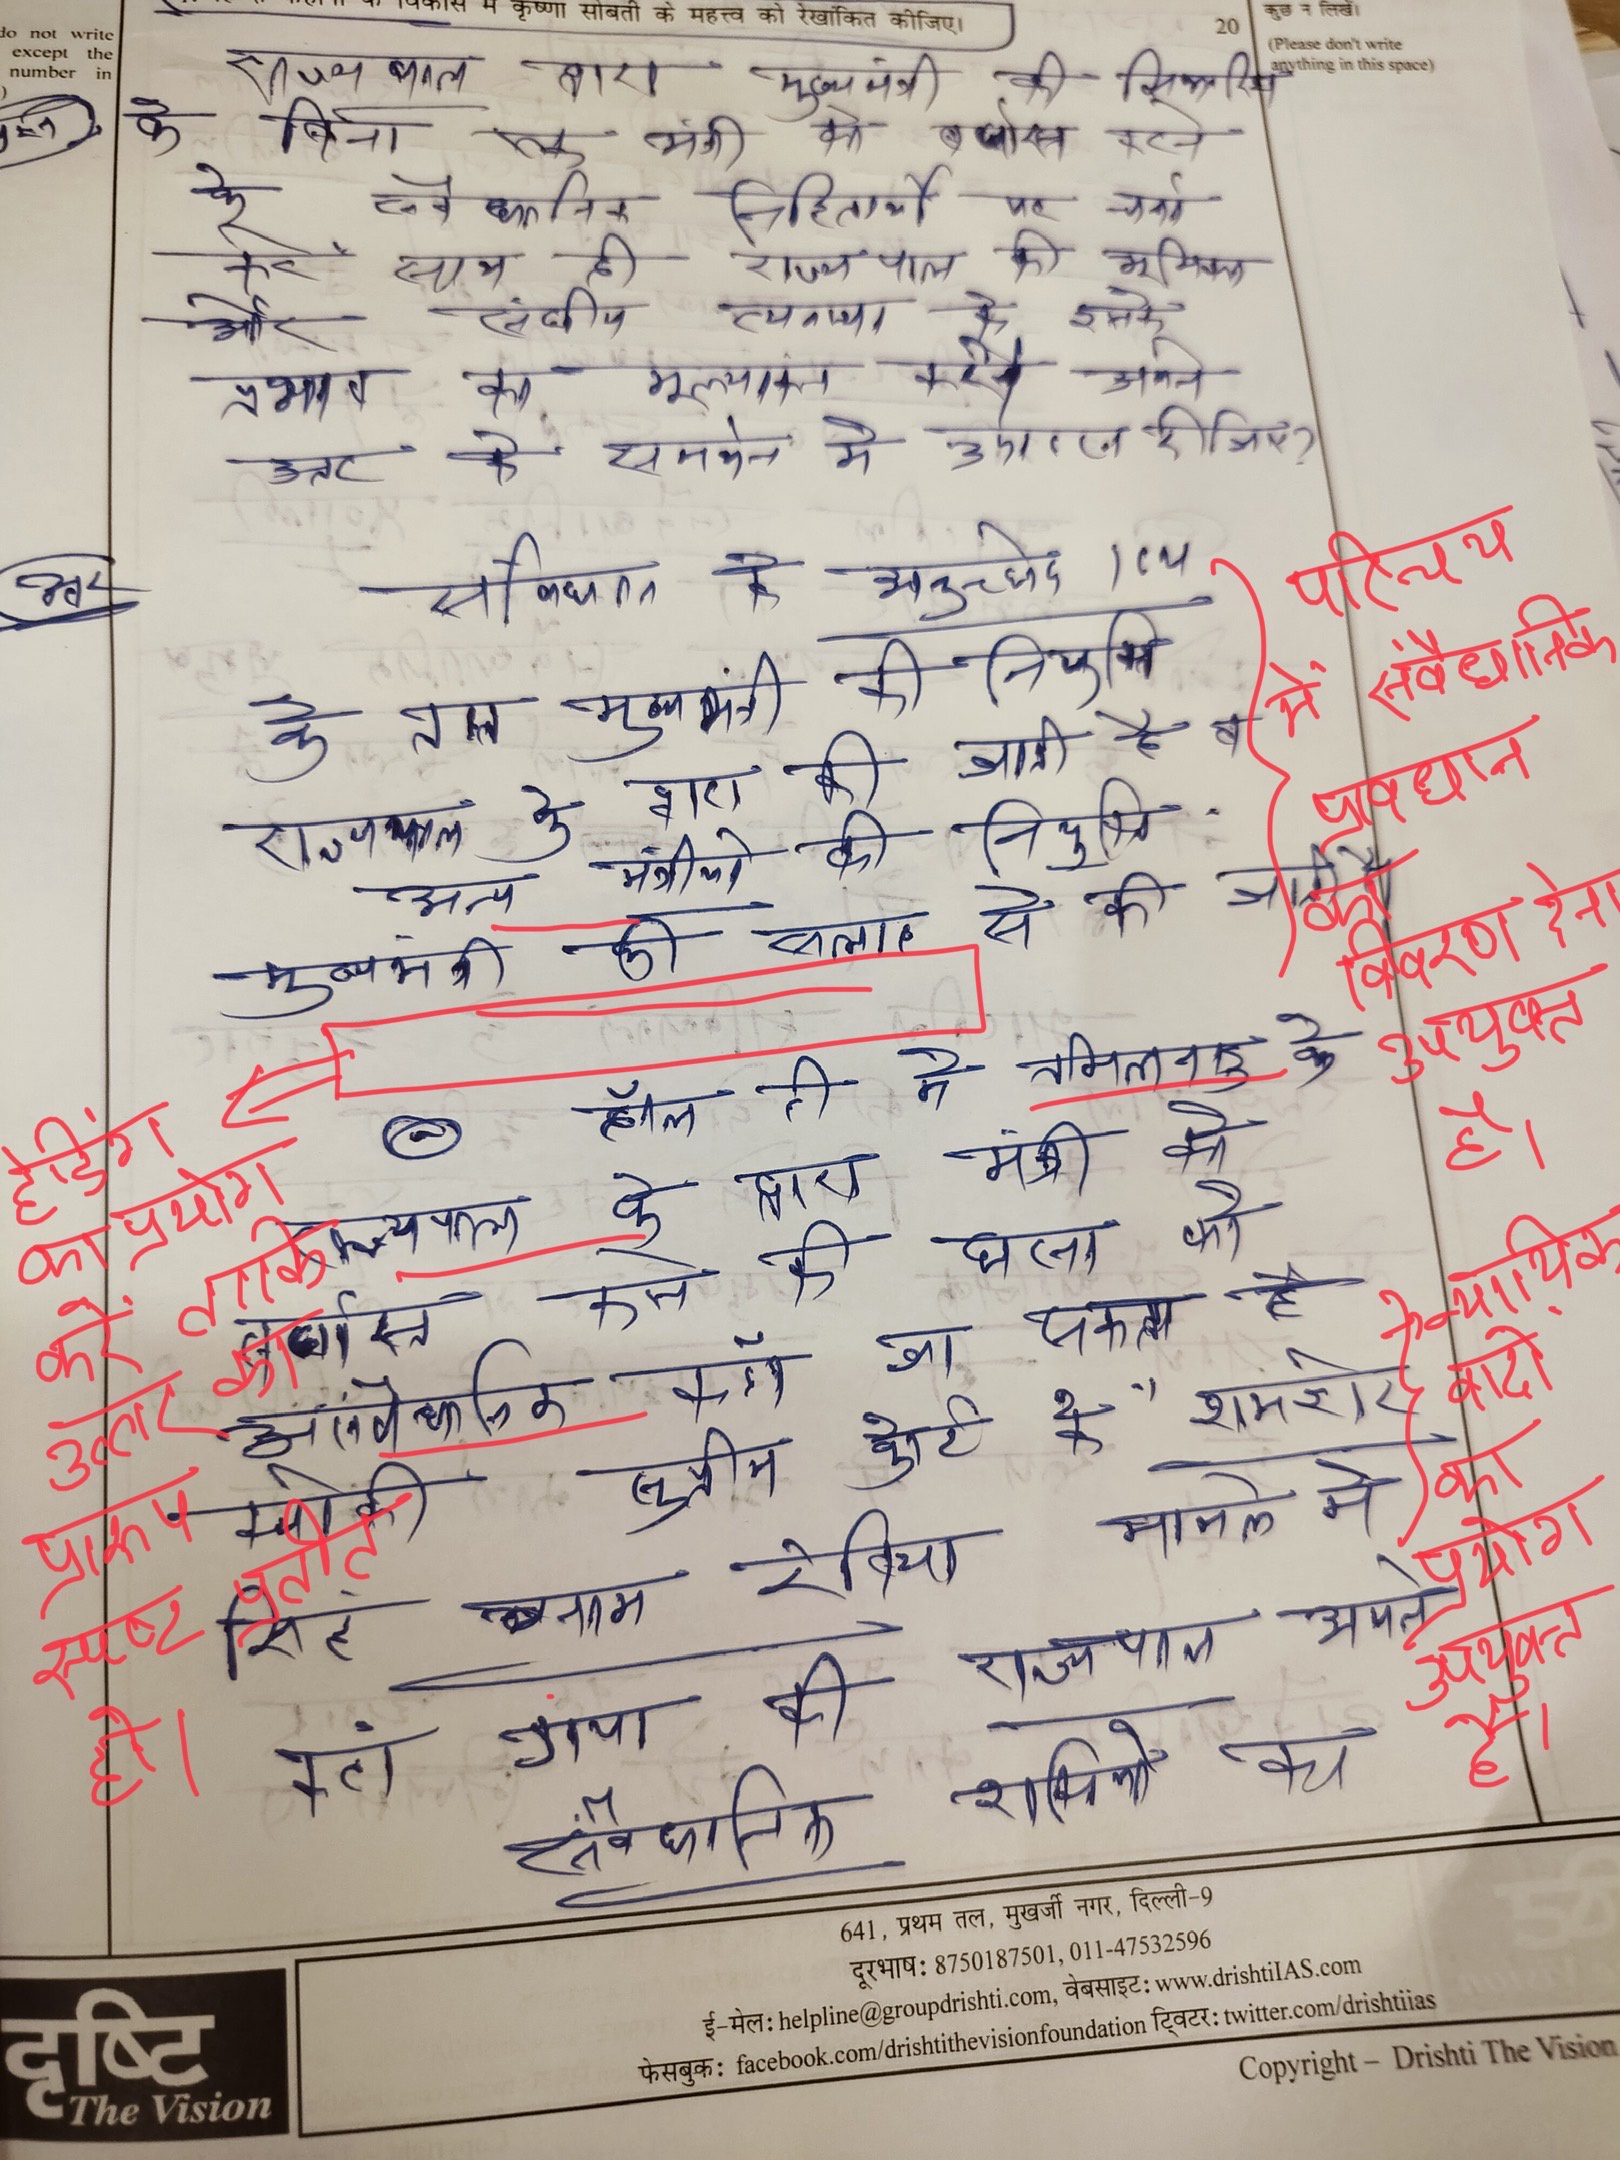 के विकास में कृष्णा सोबती के महत्त्व को रेखांकित कीजिए।
20
कुछ न लिखें।
do not write
except the
number in
(Please don't write
anything in this space)
राज्यपाल द्वारा मुख्यमंत्री की सिफारिश
के बिना एक मंत्री को बर्खास्त करने
के संवैधानिक निहितार्थों पर चर्चा
करें साथ ही राज्यपाल की भूमिका
और संघीय व्यवस्था के इसके
प्रभाव का मूल्यांकन करते अपने
उत्तर के समर्थन में उदाहरण दीजिए?
उत्तर
संविधान के अनुच्छेद 164
के तहत मुख्यमंत्री की नियुक्ति
राज्यपाल के द्वारा की जाती है व
अन्य मंत्रीयो की नियुक्ति
मुख्यमंत्री की सलाह से की जाती है
परिचय
में संवैधानिक
प्रावधान
का
विवरण देना
उपयुक्त
है।
हॉल ही मे तमिलनाडु के
राज्यपाल के द्वारा मंत्री को
बर्खास्त करने की घटना को
असंवैधानिक कहाँ जा सकता है
क्योकी सुप्रीम कोर्ट के "शमशेर
सिंह बनाम रेबिया मामले मे
कहां गया की राज्यपाल अपने
संवैधानिक शक्तियों का
हेडिंग
का प्रयोग
करें ताकि
उत्तर का
प्रारूप
स्पष्ट प्रतीत
हो।
न्यायिक
वादो
का
प्रयोग
उपयुक्त
है।
641, प्रथम तल, मुखर्जी नगर, दिल्ली-9
दूरभाष: 8750187501, 011-47532596
ई-मेल: helpline@groupdrishti.com, वेबसाइट: www.drishtiIAS.com
फेसबुक: facebook.com/drishtithevisionfoundation ट्विटर: twitter.com/drishtiias
Copyright – Drishti The Vision
दृष्टि
The Vision